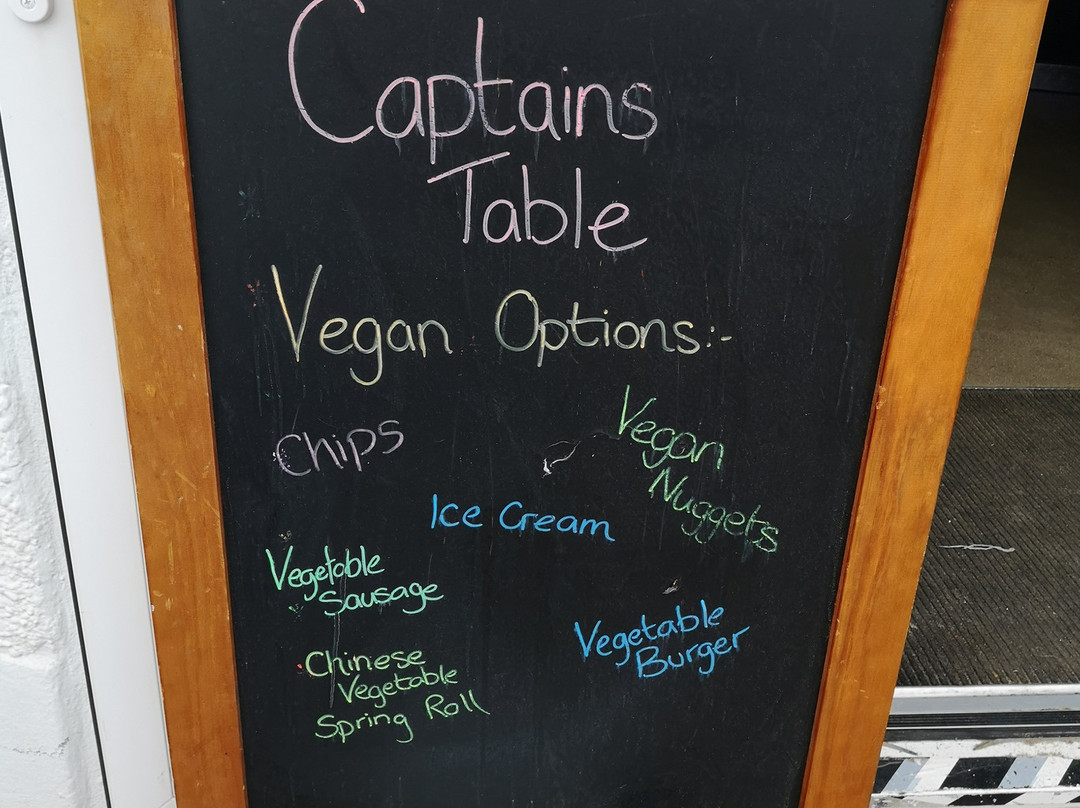 Captains
Table
Vegan Options:-
Chips
Vegan
Nuggets
Ice Cream
Vegetable
Sausage
Vegetable
Burger
Chinese
Vegetable
Spring Roll